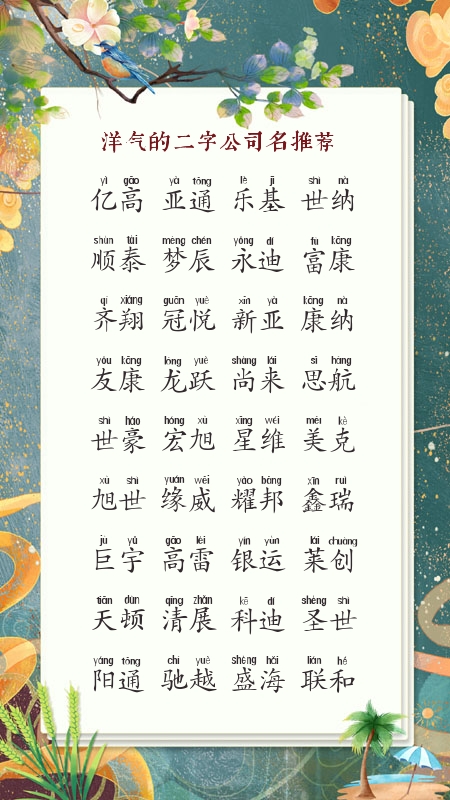 洋气的二字公司名推荐
yì gāo yà tōng lè jī shì nà
亿高 亚通 乐基 世纳
shùn tài mèng chén yǒng dí fù kāng
顺泰 梦辰 永迪 富康
qí xiáng guān yuè xīn yà kāng nà
齐翔 冠悦 新亚 康纳
yǒu kāng lóng yuè shàng lái sī háng
友康 龙跃 尚来 思航
shì háo hóng xù xīng wéi měi kè
世豪 宏旭 星维 美克
xù shì yuán wēi yào bāng xīn ruì
旭世 缘威 耀邦 鑫瑞
jù yǔ gāo léi yín yùn lái chuàng
巨宇 高雷 银运 莱创
tiān dùn qīng zhǎn kē dí shèng shì
天顿 清展 科迪 圣世
yáng tōng chí yuè shèng hǎi lián hé
阳通 驰越 盛海 联和